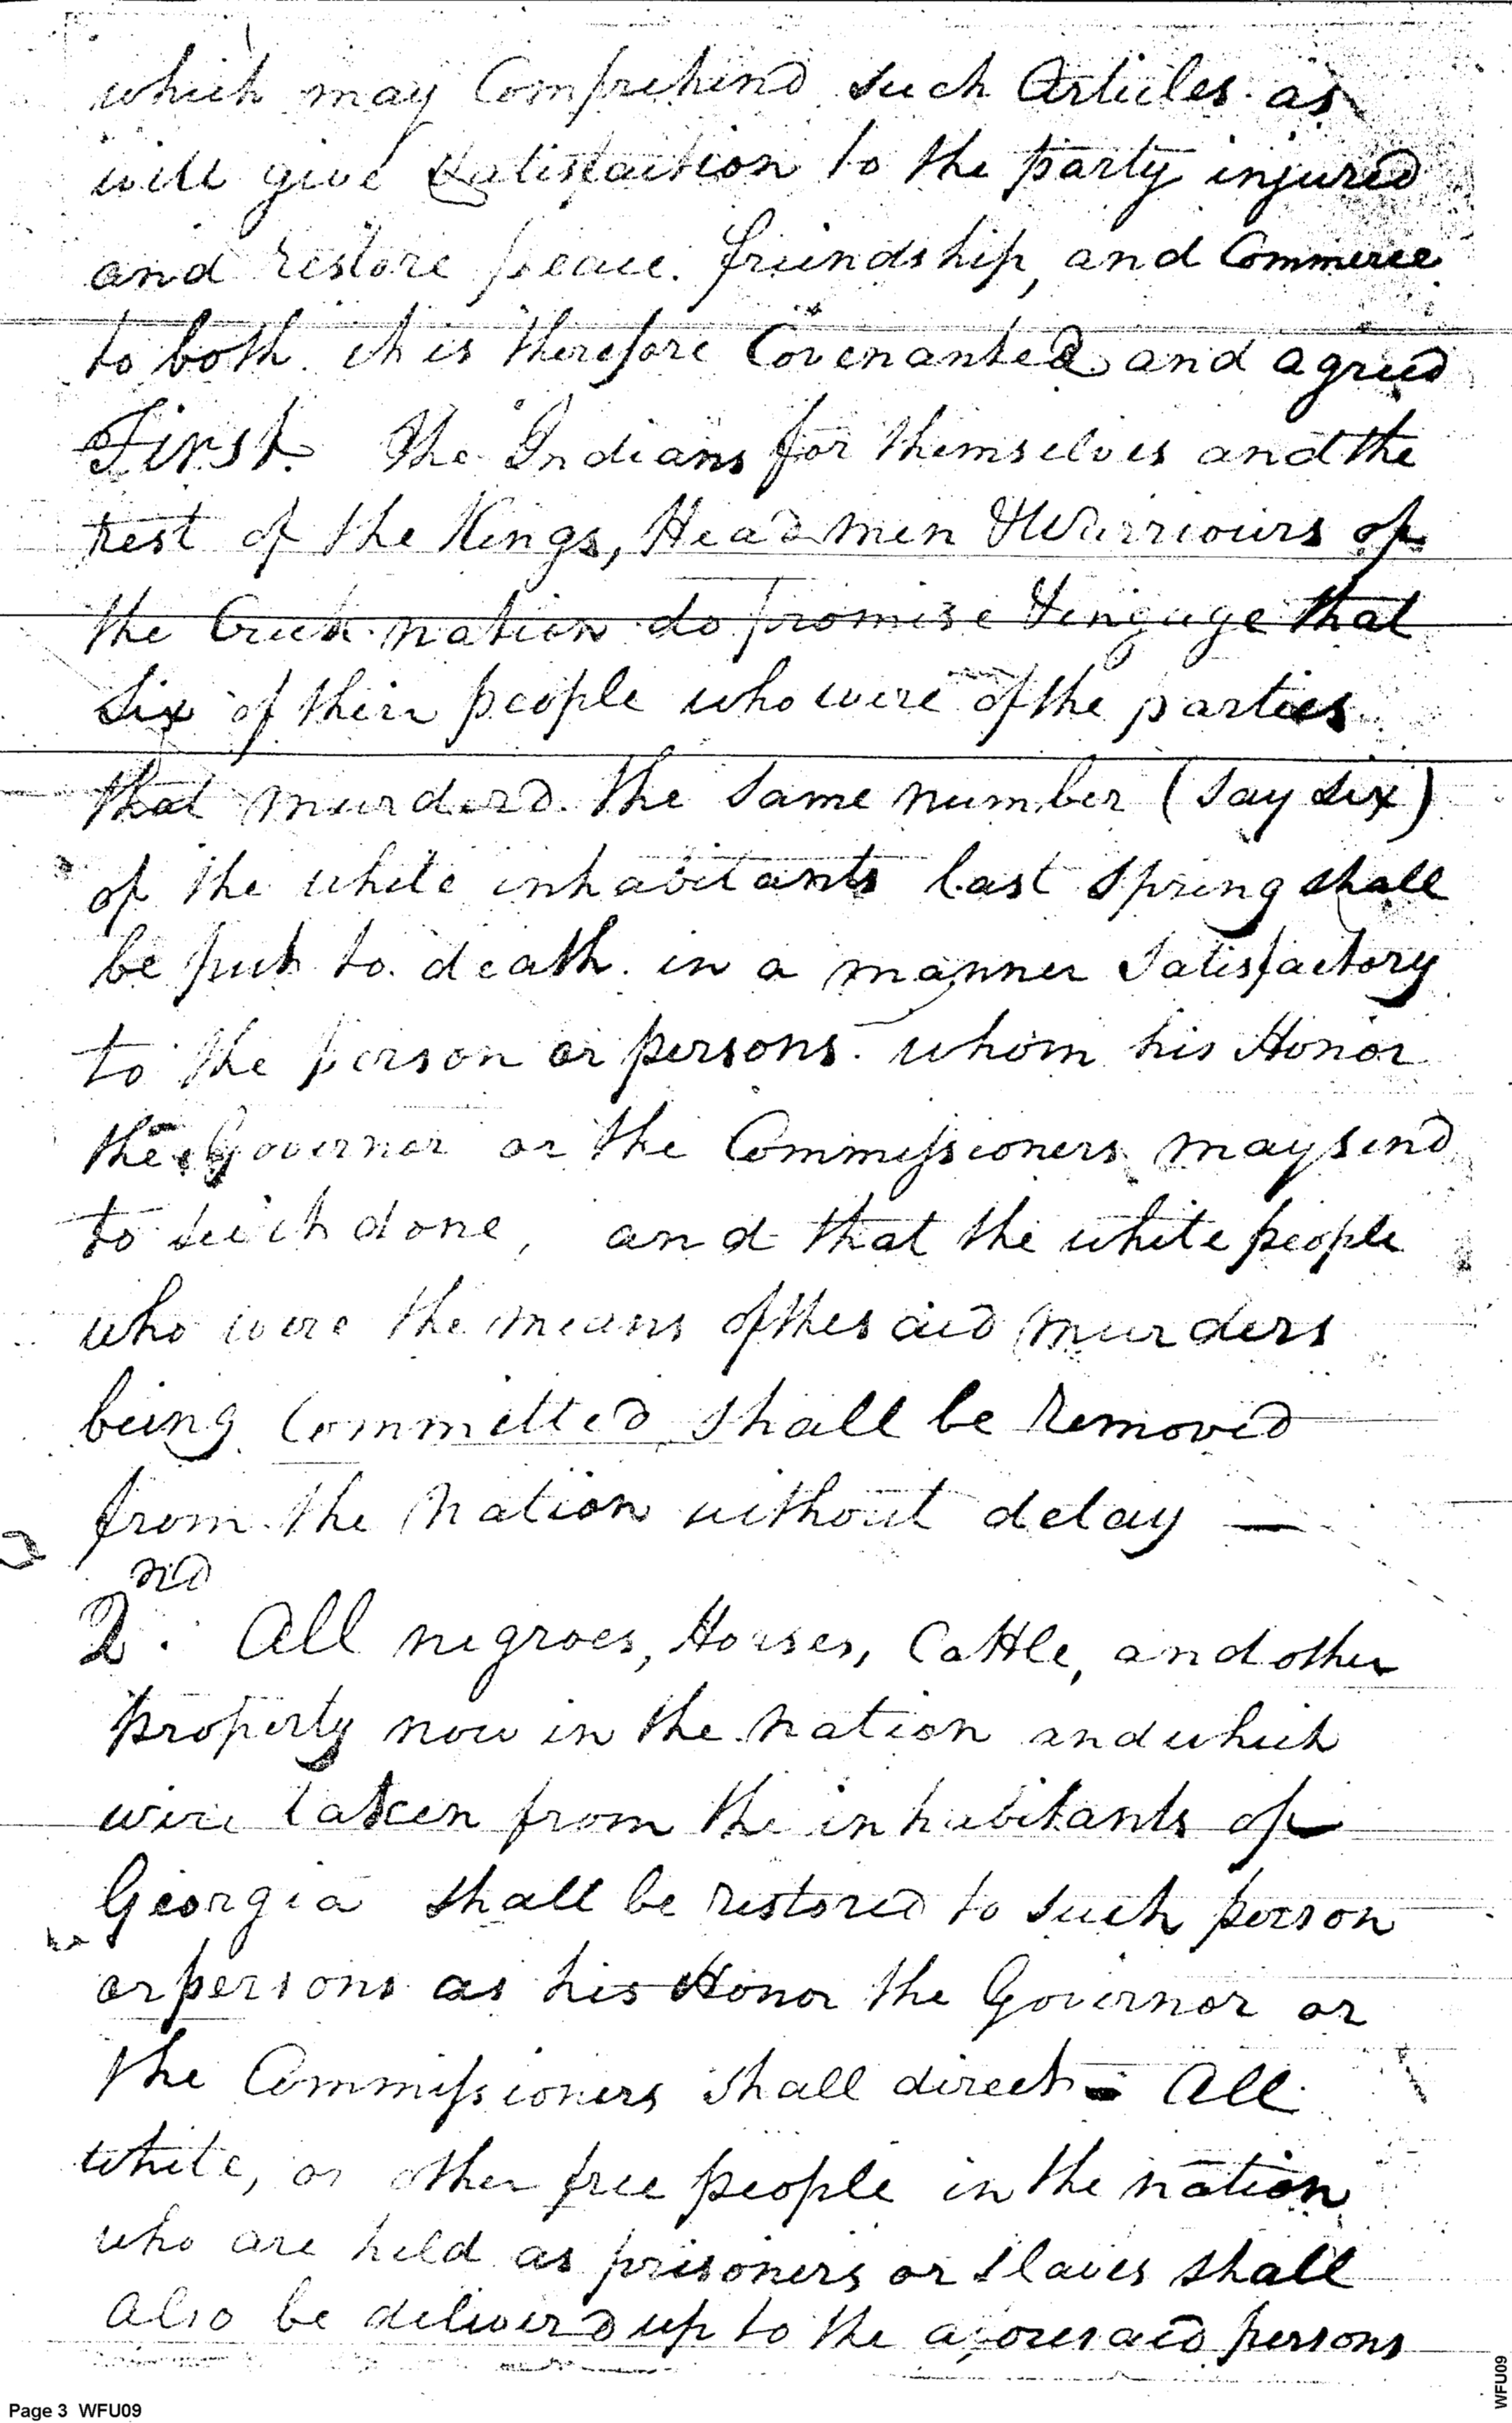 which may Comprehend such Articles as
will give Satisfaction to the party injured
and restore peace. friendship, and Commerce
to both. it is therefore Covenanted and agreed
First. The Indians for themselves and the
rest of the Kings, Head men & Warriours of
the Creek nation do promise & engage that
six of their people who were of the parties
that murderd. the same number (say six)
of the white inhabitants last spring shall
be put to death. in a manner satisfactory
to the person or persons. whom his Honor
the Governor or the Commissioners may send
to see it done, and that the white people
who were the means of the said murders
being Committed shall be removed
from the Nation without delay —
2nd. All negroes, Horses, Cattle, and other
property now in the nation and which
were taken from the inhabitants of
Georgia shall be restored to such person
or persons as his Honor the Governor or
the Commissioners shall direct - All
white, or other free people in the nation
who are held as prisoners or slaves shall
also be deliverd up to the aforesaid persons
Page 3 WFU09
WFU09